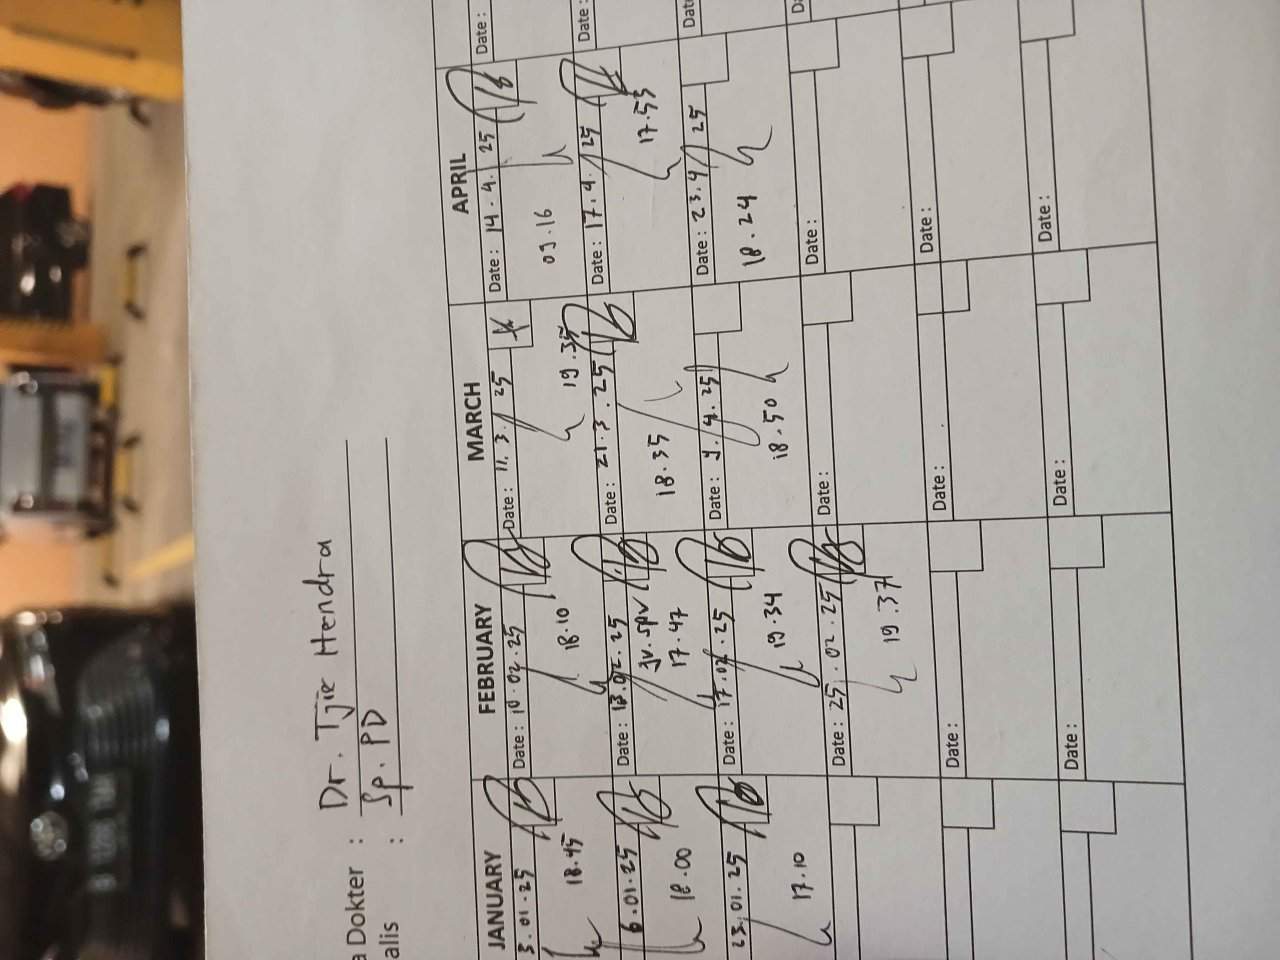 a Dokter : Dr. Tjie Hendra
alis : Sp. PD
JANUARY
3.01.25
18.45
6.01.25
18.00
23.01.25
17.10
FEBRUARY
Date : 10.02.25
18.10
Date : 13.02.25
Jv. spv
17.47
Date : 17.02.25
19.34
Date : 25.02.25
19.37
Date :
Date :
MARCH
Date : 11.3.25
19.35
Date : 21.3.25
18.35
Date : 9.4.25
18.50
Date :
Date :
Date :
APRIL
Date : 14.4.25
09.16
Date : 17.4.25
17.53
Date : 23.4.25
18.24
Date :
Date :
Date :
Date :
Date :